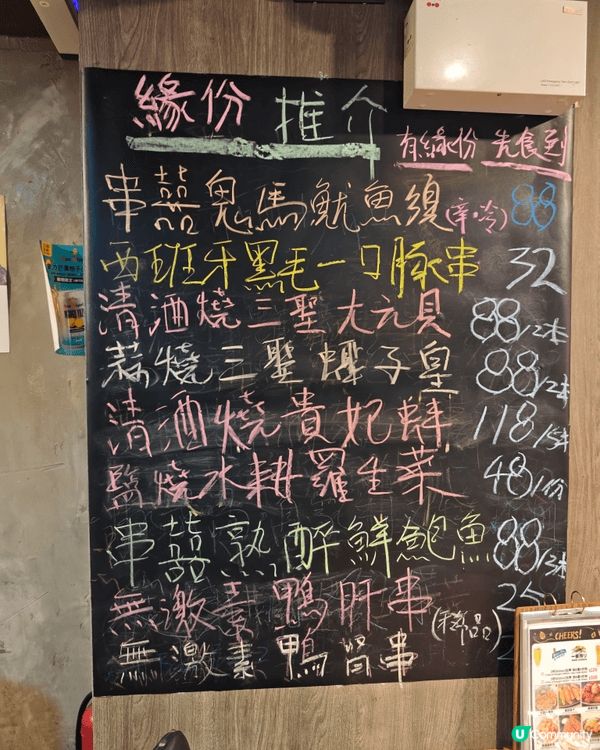 緣份推介
有緣份 先食到
串囍鬼馬魷魚鬚(辛·冷) 88
西班牙黑毛一口豚串 32
清酒燒三聖大元貝 88/2本
蒜燒三聖蟶子皇 88/2本
清酒燒貴妃蚌 118/5本
鹽燒水耕羅生菜 48/份
串囍熟醉鮮鮑魚 88/3本
無激素鴨肝串 25
無激素鴨腎串
CHEERS!
U Community